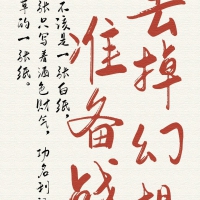 丢掉幻想
准备战
不该是一张白纸，
张只写着酒色财气，功名利
草的一张纸。